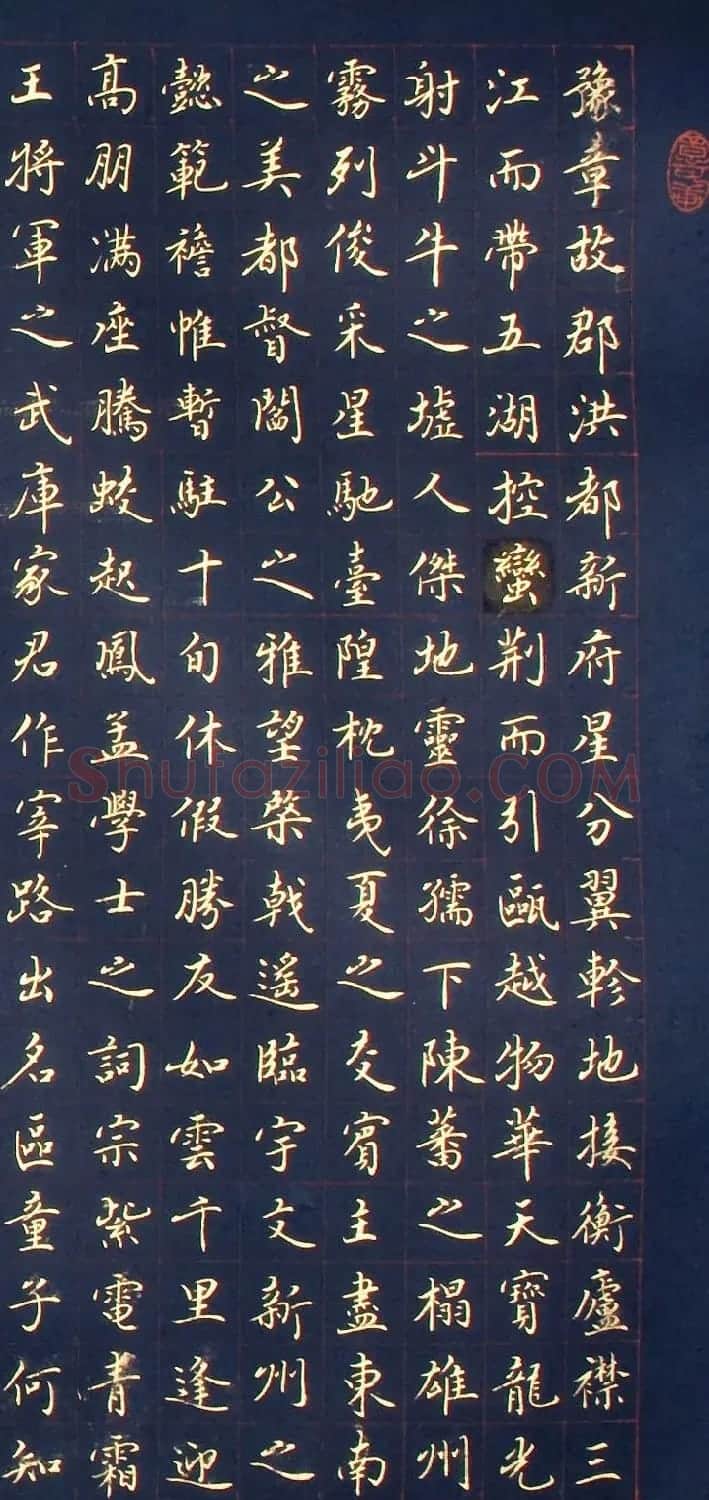 豫章故郡洪都新府星分翼軫地接衡廬襟三
江而帶五湖控蠻荆而引甌越物華天寶龍光
射斗牛之墟人傑地靈徐孺下陳蕃之榻雄州
霧列俊采星馳臺隍枕夷夏之交賓主盡東南
之美都督閻公之雅望棨戟遥臨宇文新州之
懿範襜帷暫駐十旬休假勝友如雲千里逢迎
高朋滿座騰蛟起鳳孟學士之詞宗紫電青霜
王將軍之武庫家君作宰路出名區童子何知
Shufaziliao.COM